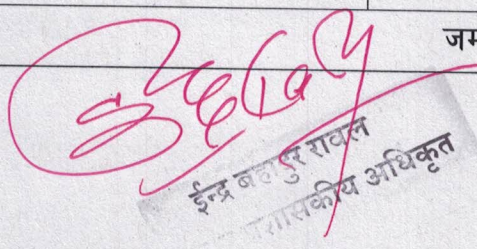 जम
ईन्द्र बहादुर रावल
प्रशासकीय अधिकृत